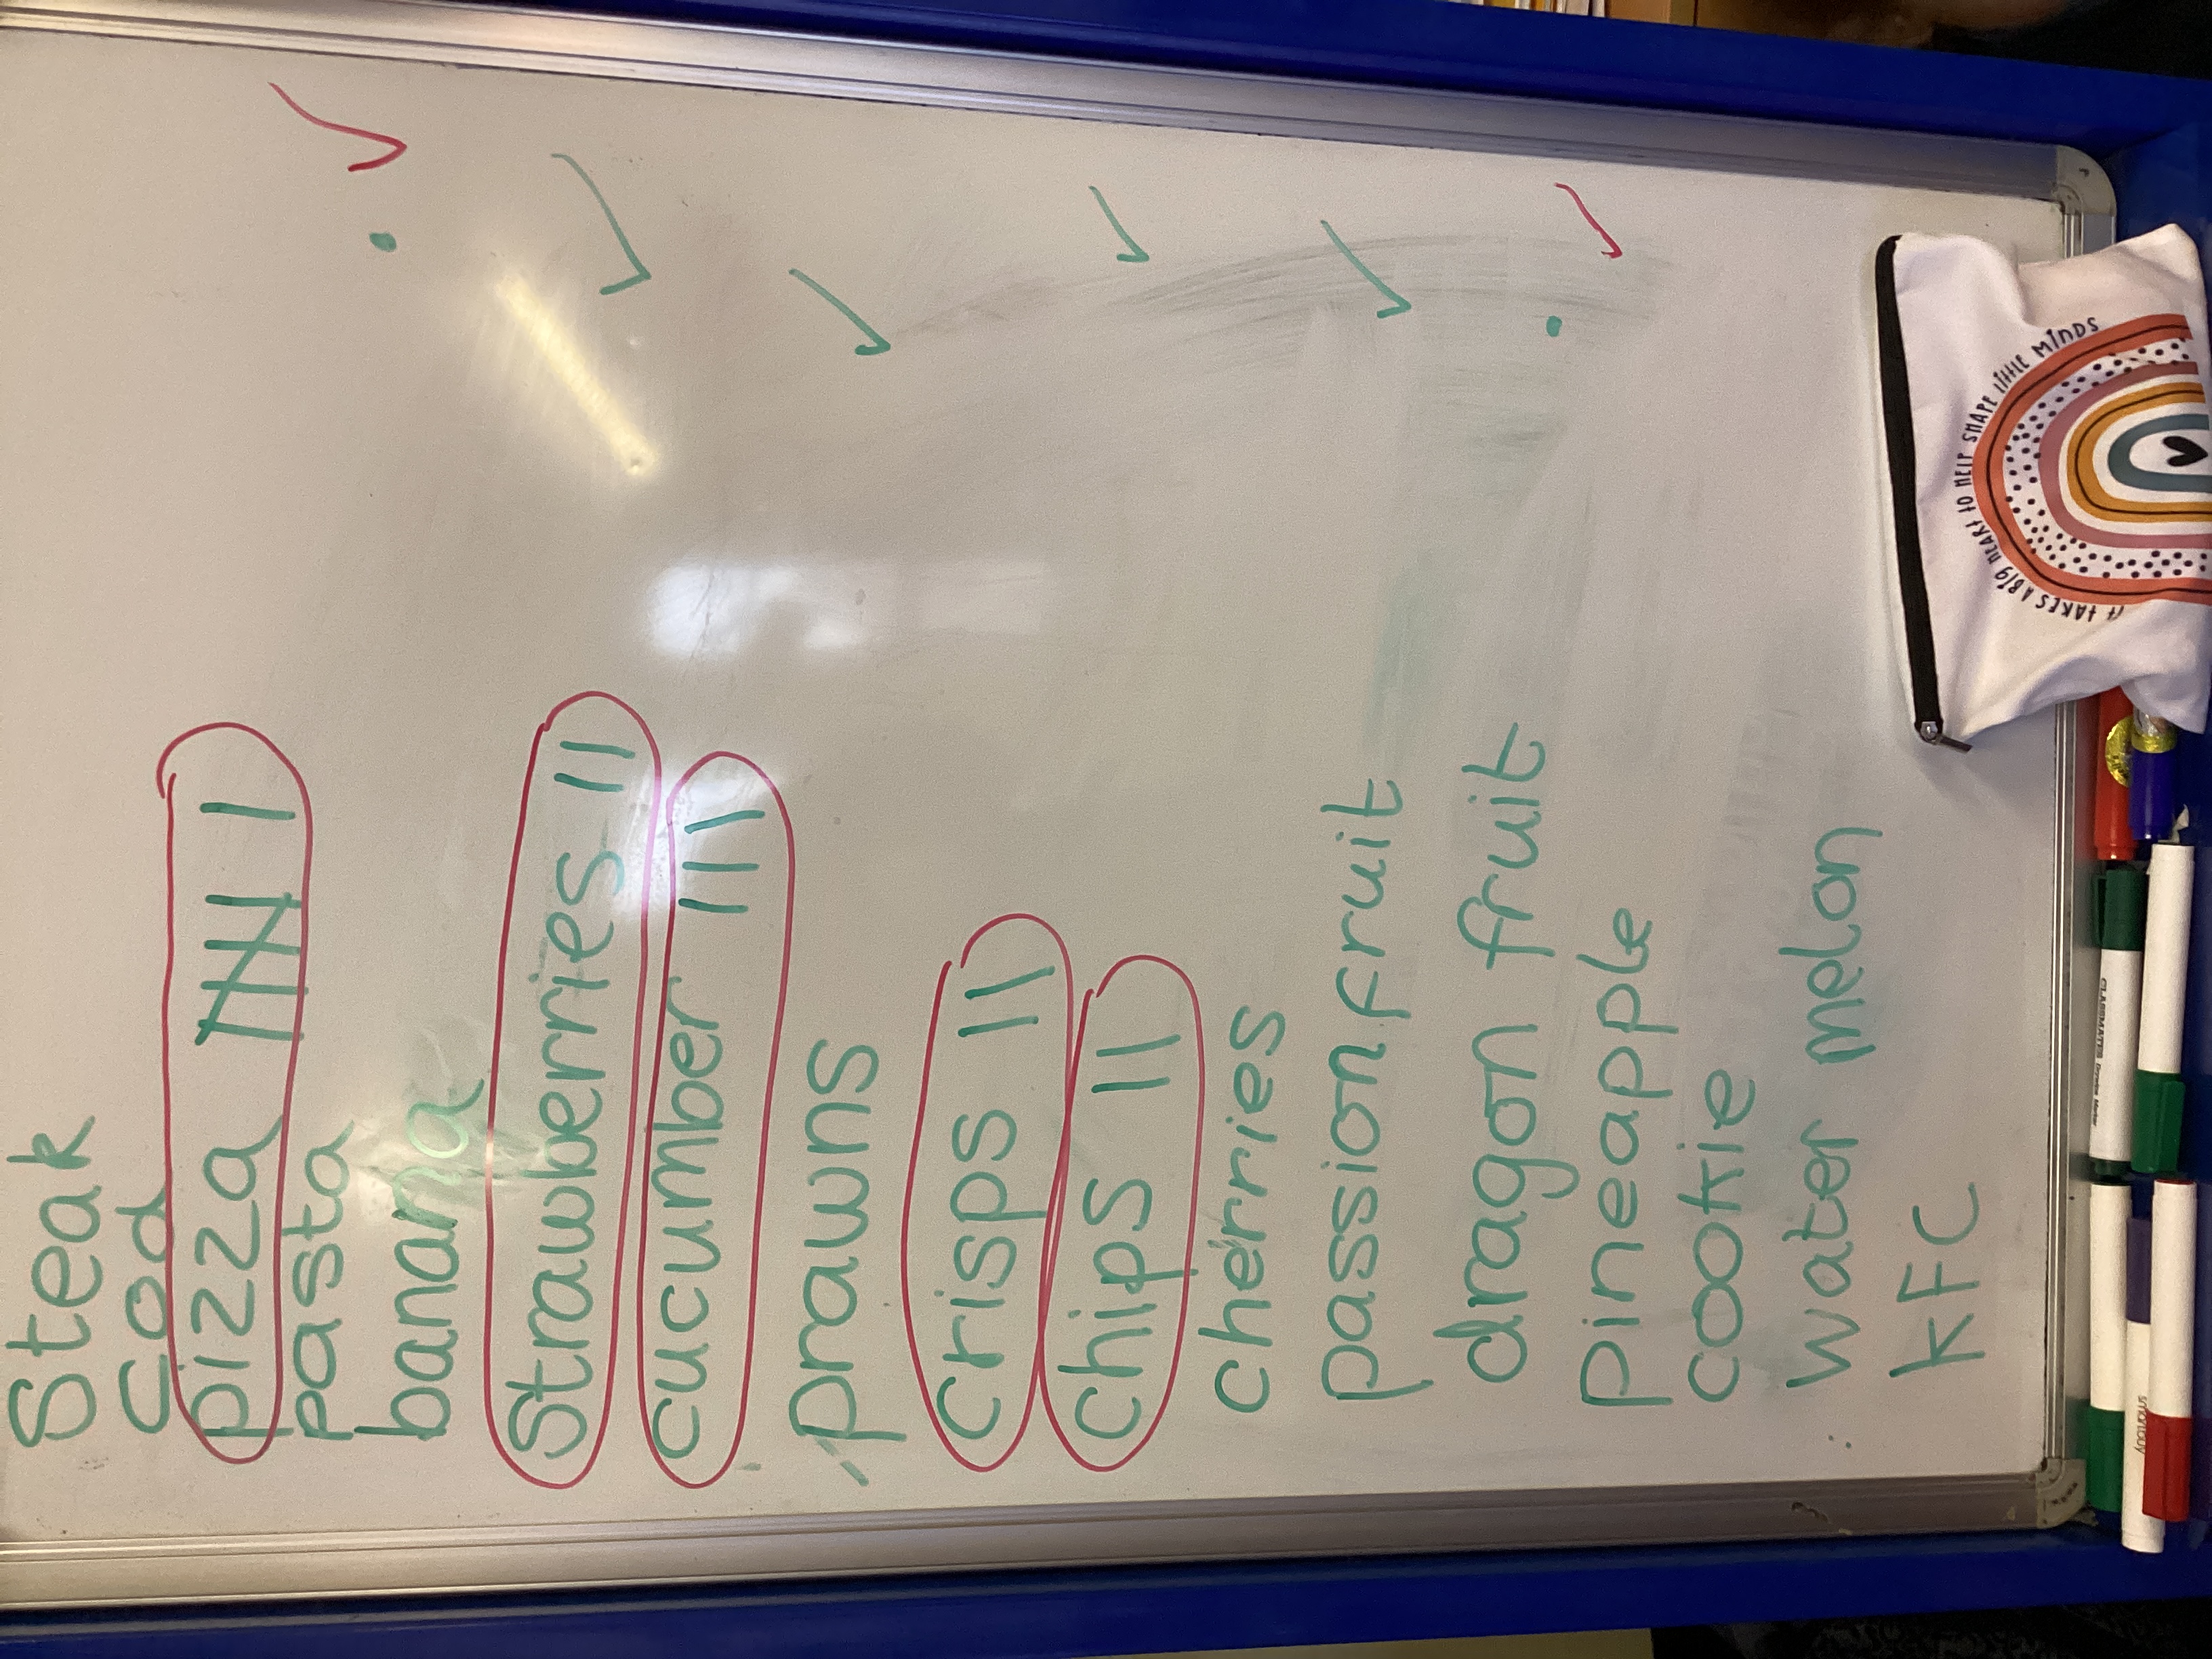 Steak
Cod
pizza 𝍸 |
pasta
banana
Strawberries ||
cucumber |||
prawns
crisps ||
chips ||
cherries
passion fruit
dragon fruit
pineapple
cookie
water melon
KFC
IT TAKES A BIG HEART TO HELP SHAPE LITTLE MINDS
CLASSMATES
smartbuy